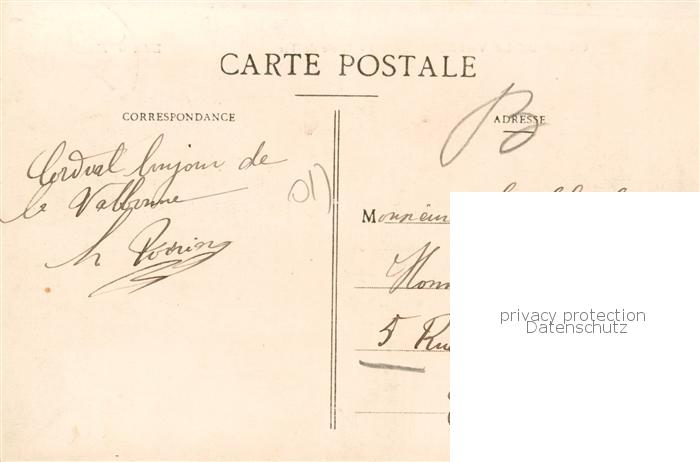 CARTE POSTALE
CORRESPONDANCE
Cordial bonjour de
la Valbonne
01)
B
ADRESSE
Monsieur
5 Rue
privacy protection
Datenschutz